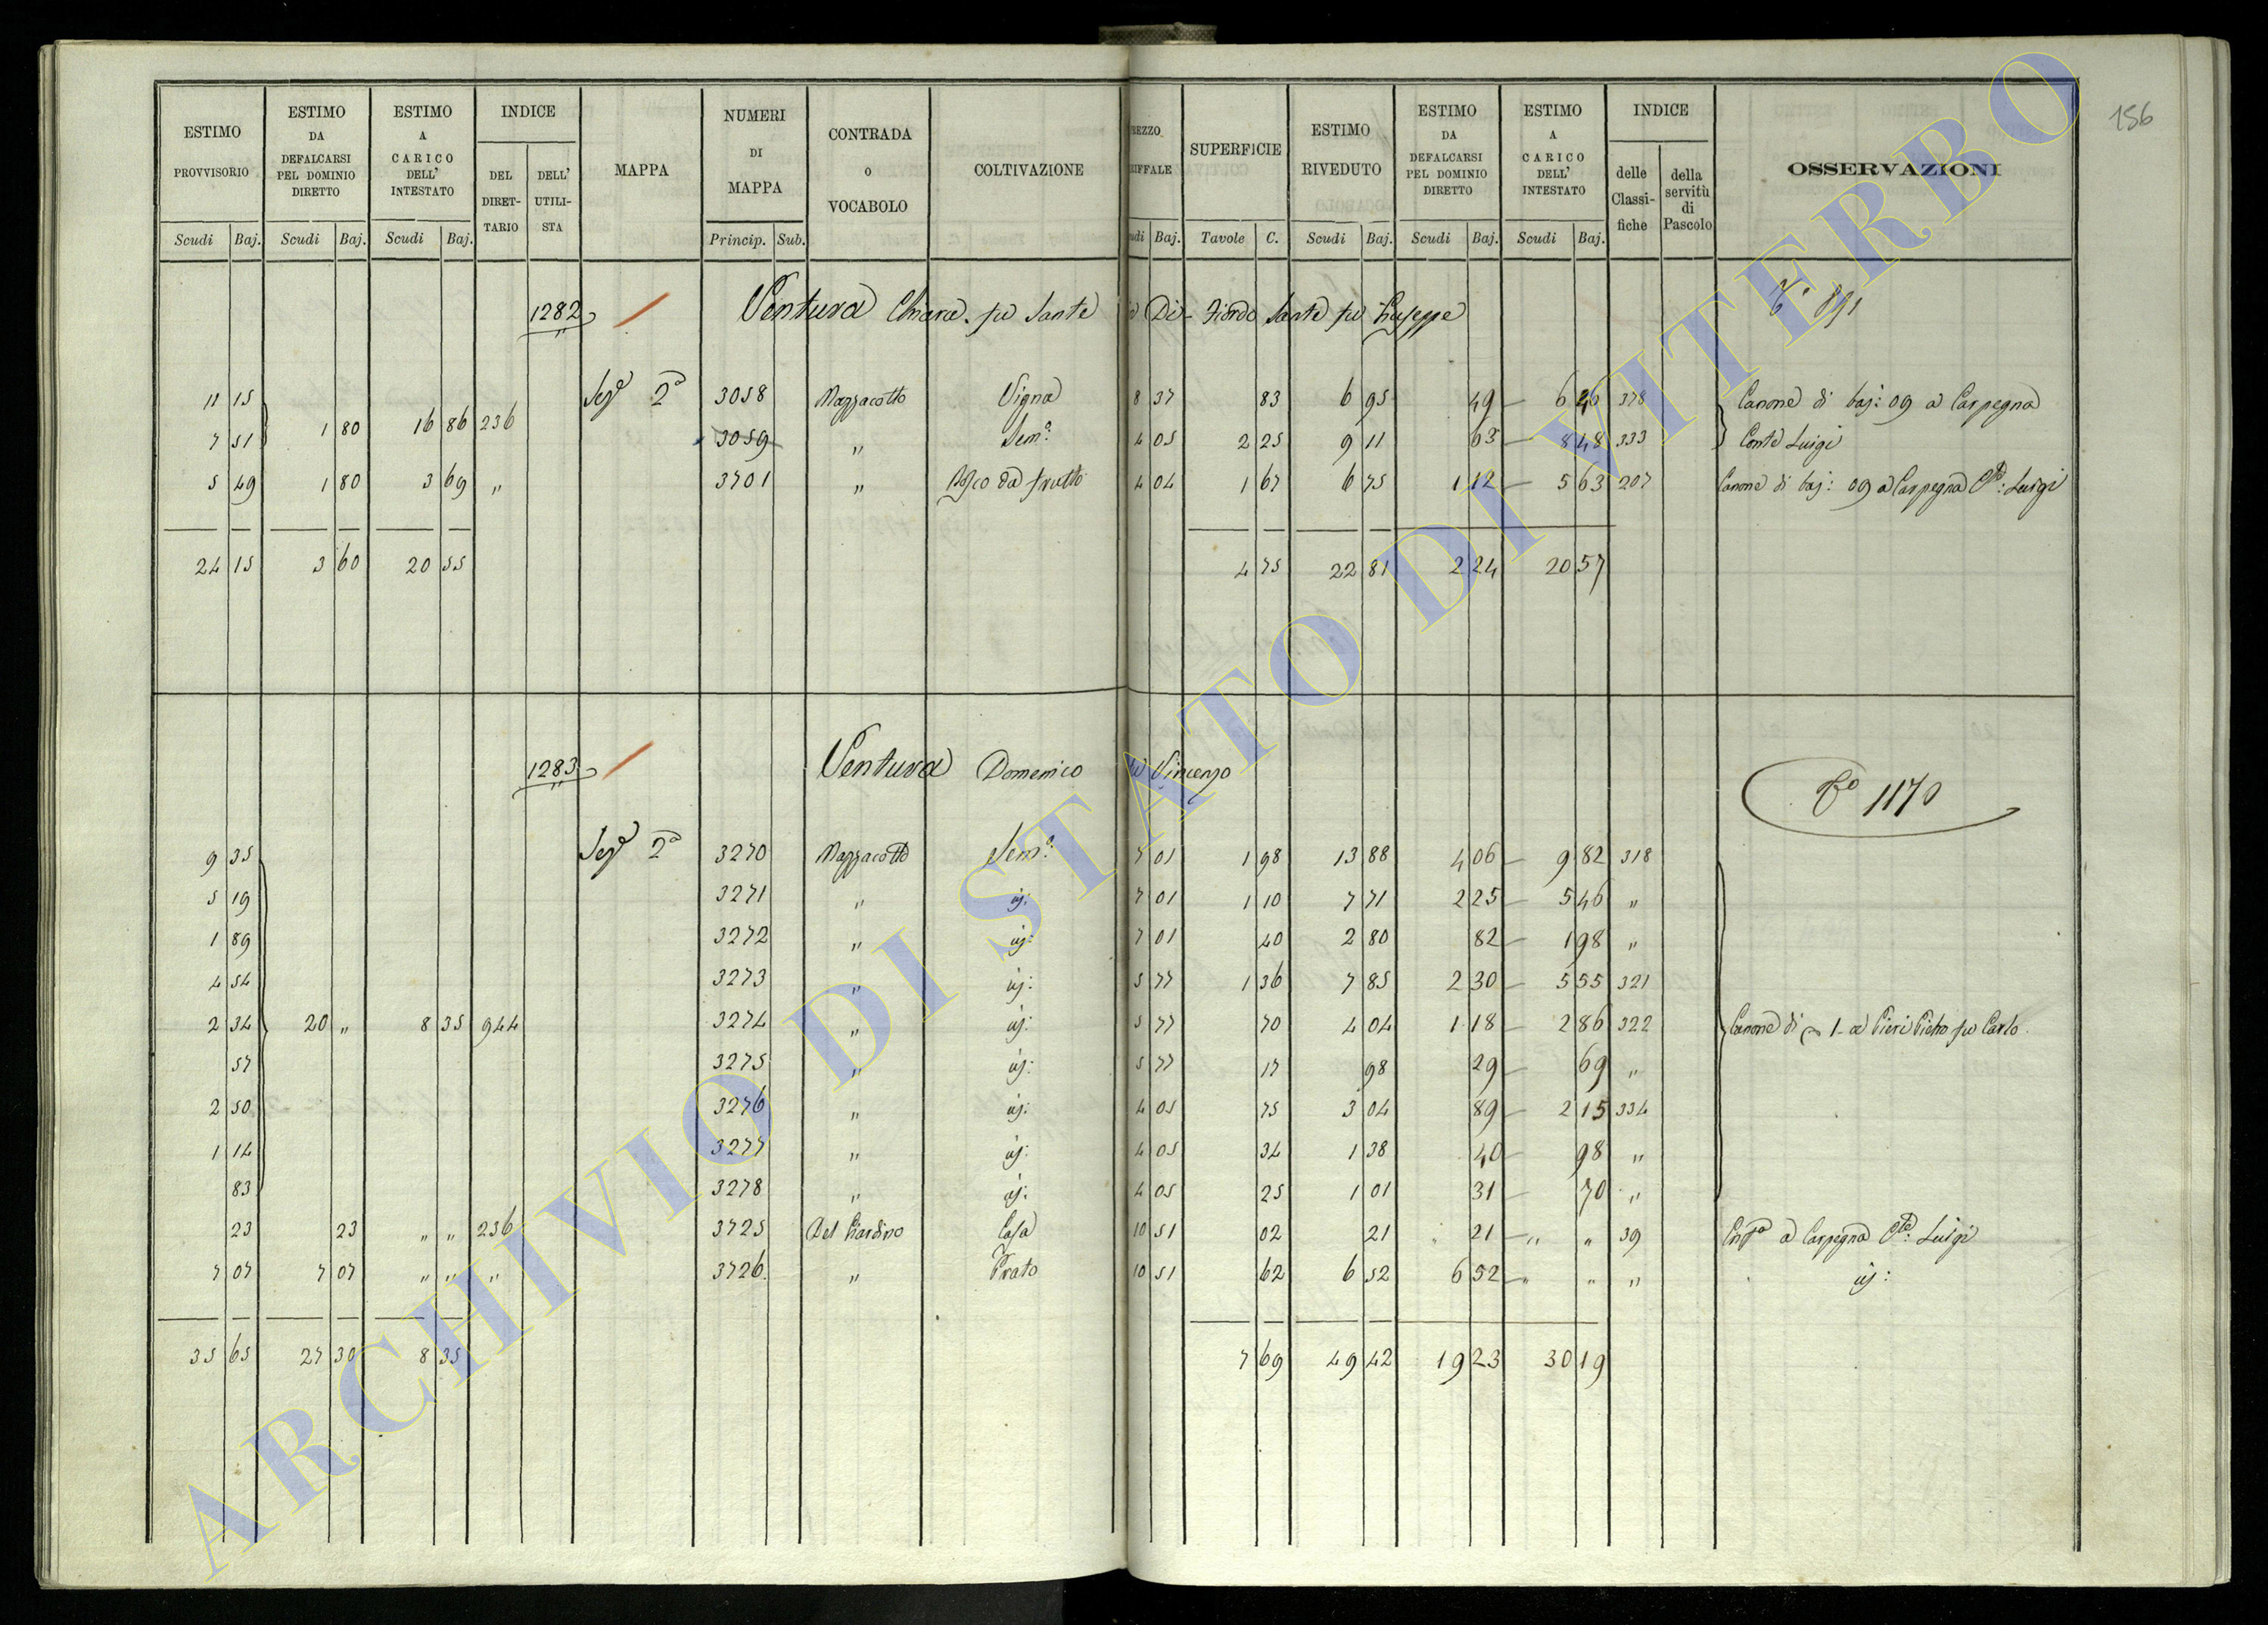 156
ESTIMO PROVVISORIO Scudi Baj. ESTIMO DA DEFALCARSI PEL DOMINIO DIRETTO Scudi Baj. ESTIMO A CARICO DELL' INTESTATO Scudi Baj. INDICE DEL DIRET- TARIO DELL' UTILI- STA MAPPA NUMERI DI MAPPA Princip. Sub. CONTRADA O VOCABOLO COLTIVAZIONE REZZO RIFFALE udi Baj. SUPERFICIE Tavole C. ESTIMO RIVEDUTO Scudi Baj. ESTIMO DA DEFALCARSI PEL DOMINIO DIRETTO Scudi Baj. ESTIMO A CARICO DELL' INTESTATO Scudi Baj. INDICE delle Classi- fiche della servitù di Pascolo OSSERVAZIONI
1282 Ventura Chiara fu Sante Di-Fiordo Sante fu Giuseppe 891
11 15 Sez.e 2a 3058 Mazzacotto Vigna 8 37 83 6 95 49 6 46 378 Canone di baj: 09 a Carpegna
1 80 16 86 236
7 51 3059 " Sem.o 4 05 2 25 9 11 63 8 48 333 Conte Luigi
5 49 1 80 3 69 " 3701 " Bosco da frutto 4 04 1 67 6 75 1 12 5 63 207 Canone di baj: 09 a Carpegna Cte: Luigi
24 15 3 60 20 55 4 75 22 81 2 24 20 57
1283 Ventura Domenico fu Vincenzo
Fo 1170
9 35 Sez.e 2a 3270 Mazzacotto Sem.o 7 01 1 98 13 88 4 06 9 82 318
5 19 3271 " ij: 7 01 1 10 7 71 2 25 5 46 "
1 89 3272 " ij: 7 01 40 2 80 82 1 98 "
4 54 3273 " ij: 5 77 1 36 7 85 2 30 5 55 321
2 34 20 " 8 35 944 3274 " ij: 5 77 70 4 04 1 18 2 86 322 Canone di 1- a Pieri Pietro fu Carlo
57 3275 " ij: 5 77 17 98 29 69 "
2 50 3276 " ij: 4 05 75 3 04 89 2 15 334
1 14 3277 " ij: 4 05 34 1 38 40 98 "
83 3278 " ij: 4 05 25 1 01 31 70 "
23 23 " " 236 3725 Del Giardino Casa 10 51 02 21 21 " " 39 a Carpegna Cte: Luigi
7 07 7 07 " " " 3726 " Prato 10 51 62 6 52 6 52 " " " ij:
35 65 27 30 8 35 7 69 49 42 19 23 30 19
ARCHIVIO DI STATO DI VITERBO